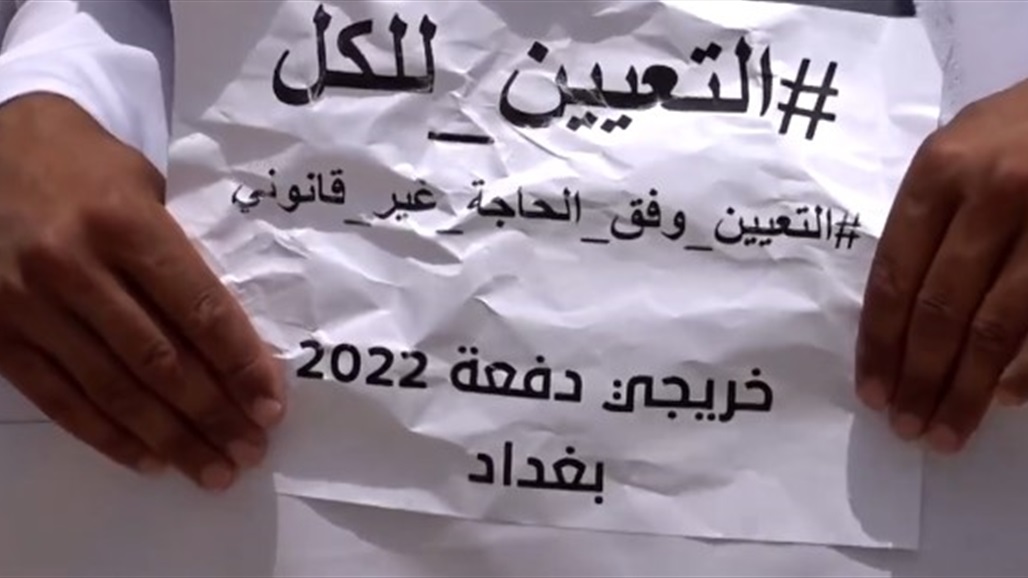 #التعيين_للكل
#التعيين_وفق_الحاجة_غير_قانوني
خريجي دفعة 2022
بغداد